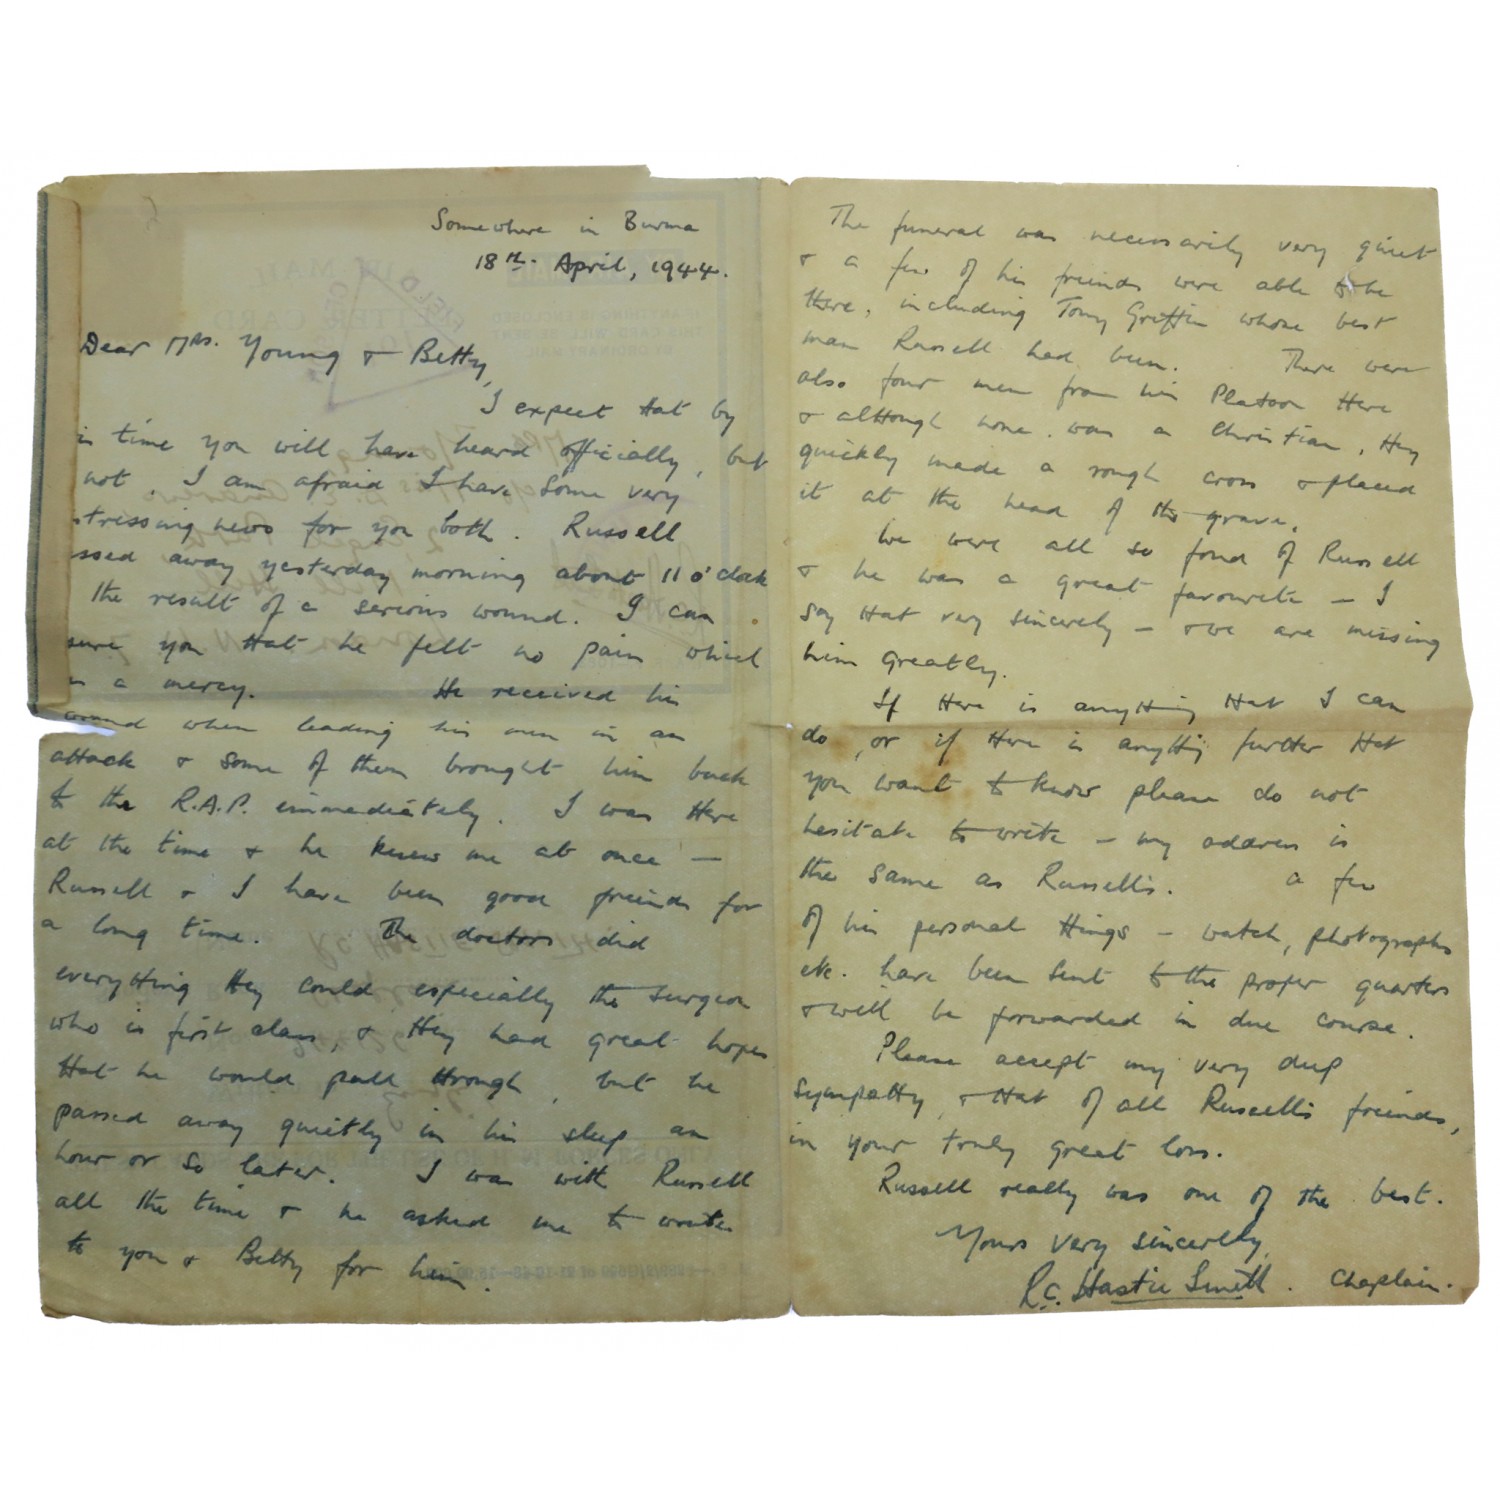 Somewhere in Burma
18th. April, 1944.
Dear Mrs. Young & Betty,
I expect that by
time you will have heard officially, but
not, I am afraid I have some very
stressing news for you both. Russell
ssed away yesterday morning about 11 o'clock
the result of a serious wound. I can
sure you that he felt no pain which
a mercy. He received his
wound when leading his men in an
attack & some of them brought him back
to the R.A.P. immediately. I was there
at the time & he knew me at once —
Russell & I have been good friends for
a long time. The doctors did
everything they could especially the surgeon
who is first class, & they had great hopes
that he would pull through, but he
passed away quietly in his sleep an
hour or so later. I was with Russell
all the time & he asked me to write
to you & Betty for him.
The funeral was necessarily very quiet
& a few of his friends were able to be
there, including Tony Griffin whose best
man Russell had been. There were
also four men from his Platoon there
& although none was a Christian, they
quickly made a rough cross & placed
it at the head of the grave.
We were all so fond of Russell
& he was a great favourite — I
say that very sincerely — & we are missing
him greatly.
If there is anything that I can
do, or if there is anything further that
you want to know please do not
hesitate to write — my address is
the same as Russell's. a few
of his personal things — watch, photographs
etc. have been sent to the proper quarters
& will be forwarded in due course.
Please accept my very deep
sympathy, & that of all Russell's friends,
in your truly great loss.
Russell really was one of the best.
Yours very sincerely,
R.C. Hastie Smith. Chaplain.